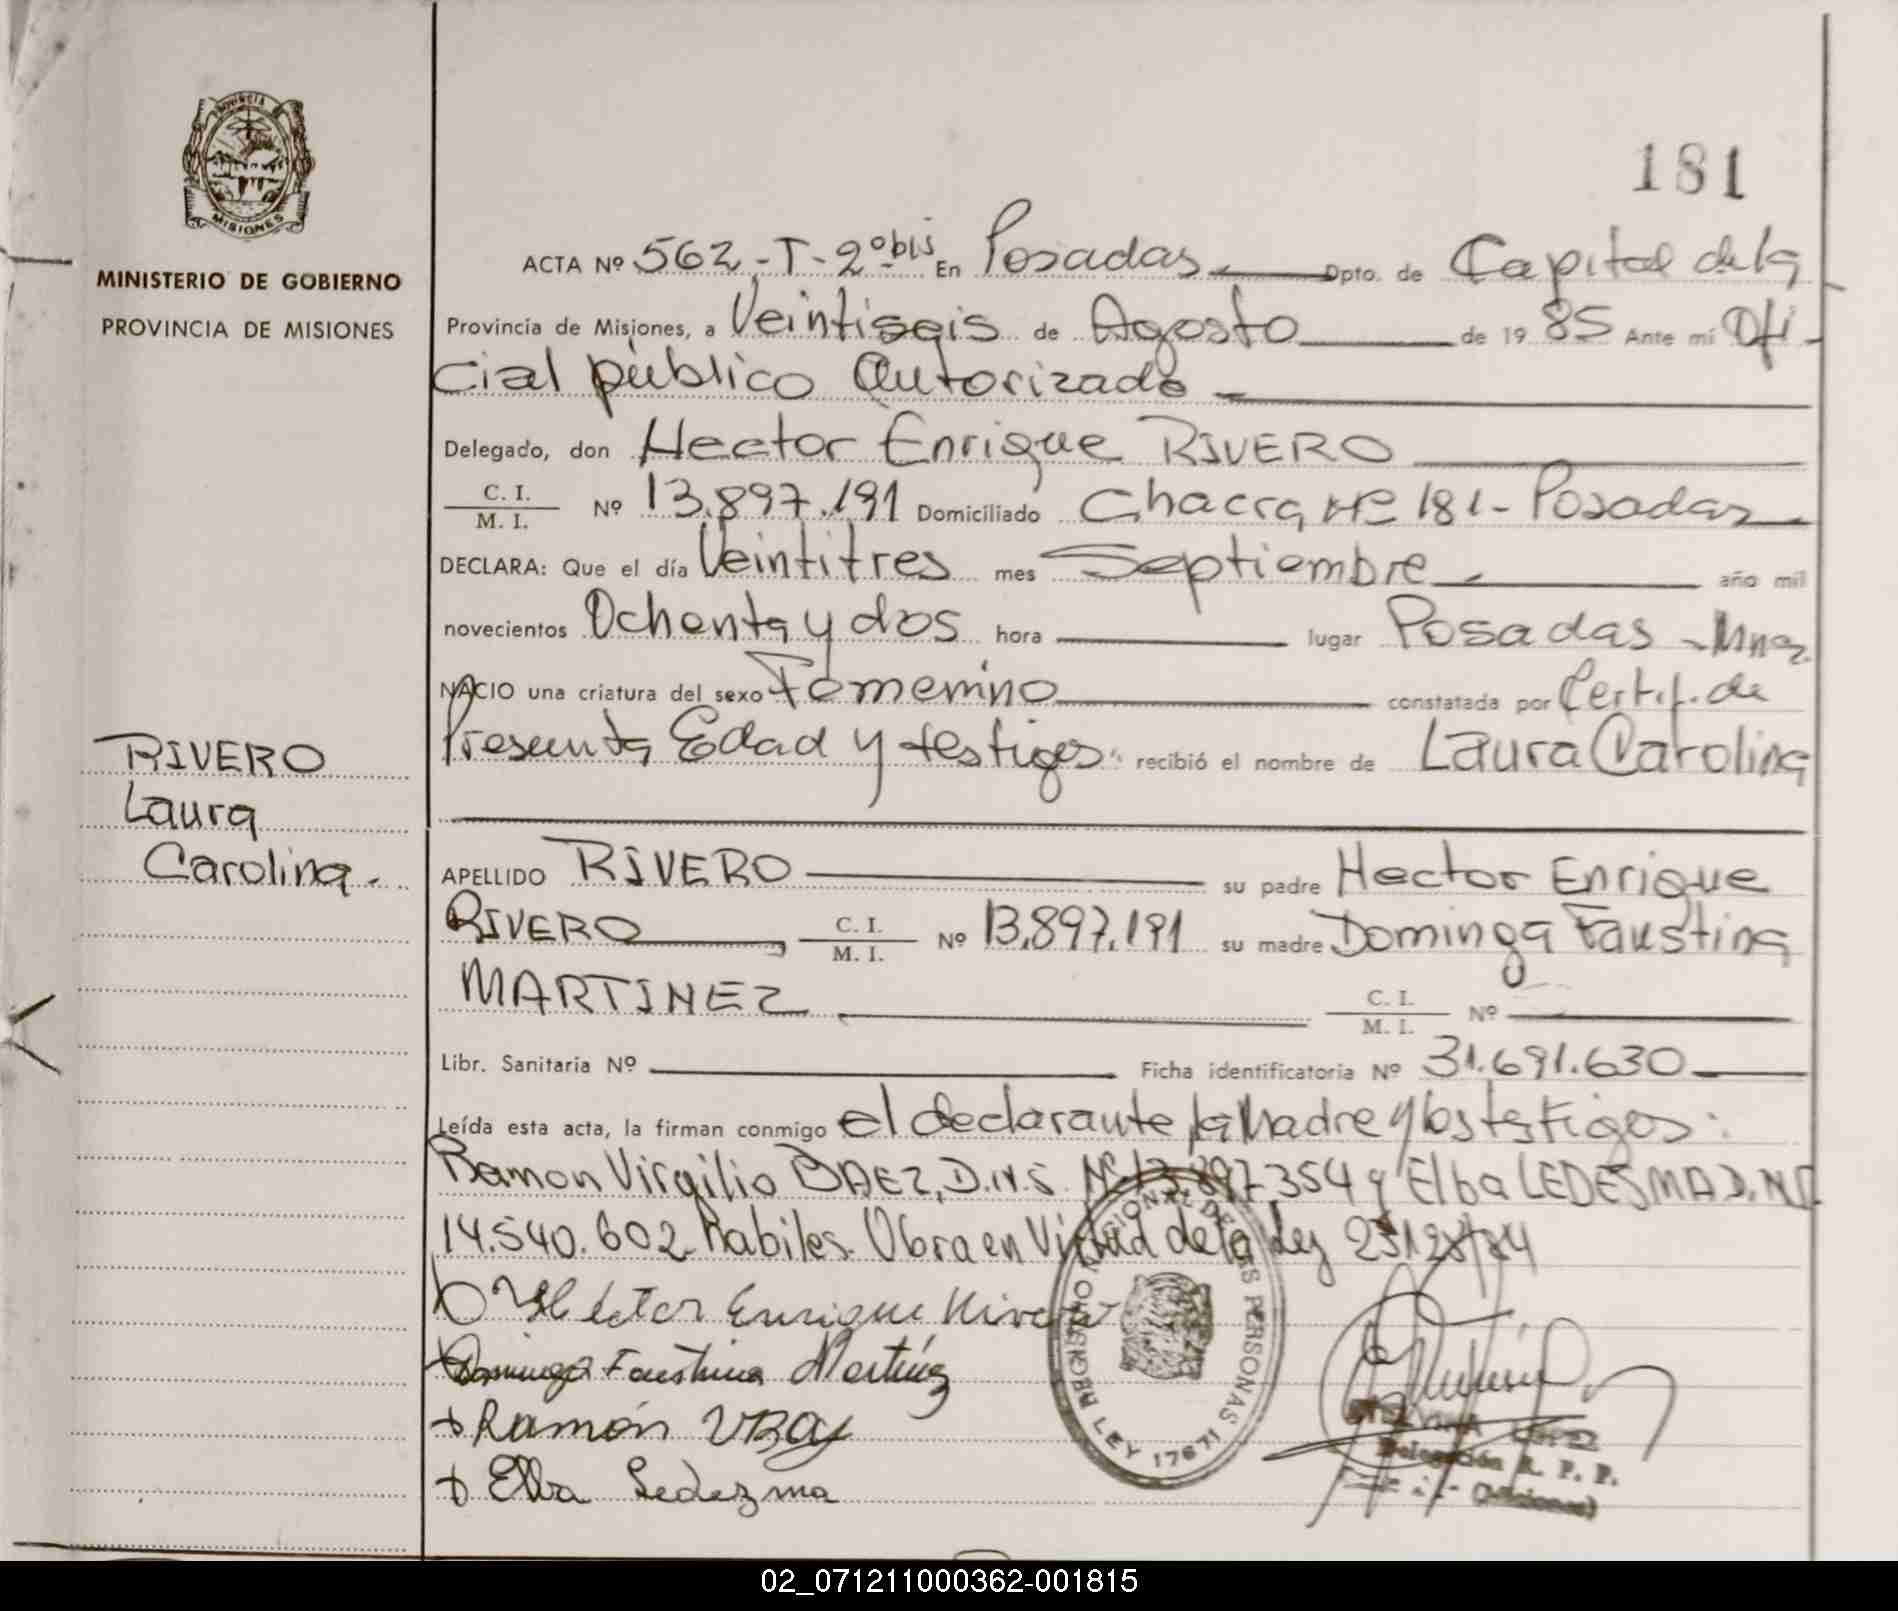 PROVINCIA DE
MISIONES
MINISTERIO DE GOBIERNO
PROVINCIA DE MISIONES
RIVERO
Laura
Carolina.
181
ACTA Nº 562-T-2º bis En Posadas Dpto. de Capital de la
Provincia de Misiones, a Veintiseis de Agosto de 1985 Ante mí Ofi-
cial público Autorizado
Delegado, don Hector Enrique RIVERO
C. I. / M. I. Nº 13.897.191 Domiciliado Chacra Nº 181 - Posadas
DECLARA: Que el día Veintitres mes Septiembre año mil
novecientos Ochenta y dos hora lugar Posadas - Mnes.
NACIO una criatura del sexo Femenino constatada por Certif. de
Presunta Edad y testigos recibió el nombre de Laura Carolina
APELLIDO RIVERO su padre Hector Enrique
RIVERO, C. I. / M. I. Nº 13.897.191 su madre Dominga Faustina
MARTINEZ C. I. / M. I. Nº
Libr. Sanitaria Nº Ficha identificatoria Nº 31.691.630
Leída esta acta, la firman conmigo el declarante, la Madre y los testigos:
Ramon Virgilio BAEZ, D.N.I. Nº 354 y Elba LEDESMA D.N.I.
14.540.602 habiles. Obra en Virtud de la Ley
Hector Enrique Rivero
Dominga Faustina Martínez
Ramón
Elba Ledezma
REGISTRO DE LAS PERSONAS
LEY 17671
Delegación R. P. P.
(Misiones)
02_071211000362-001815